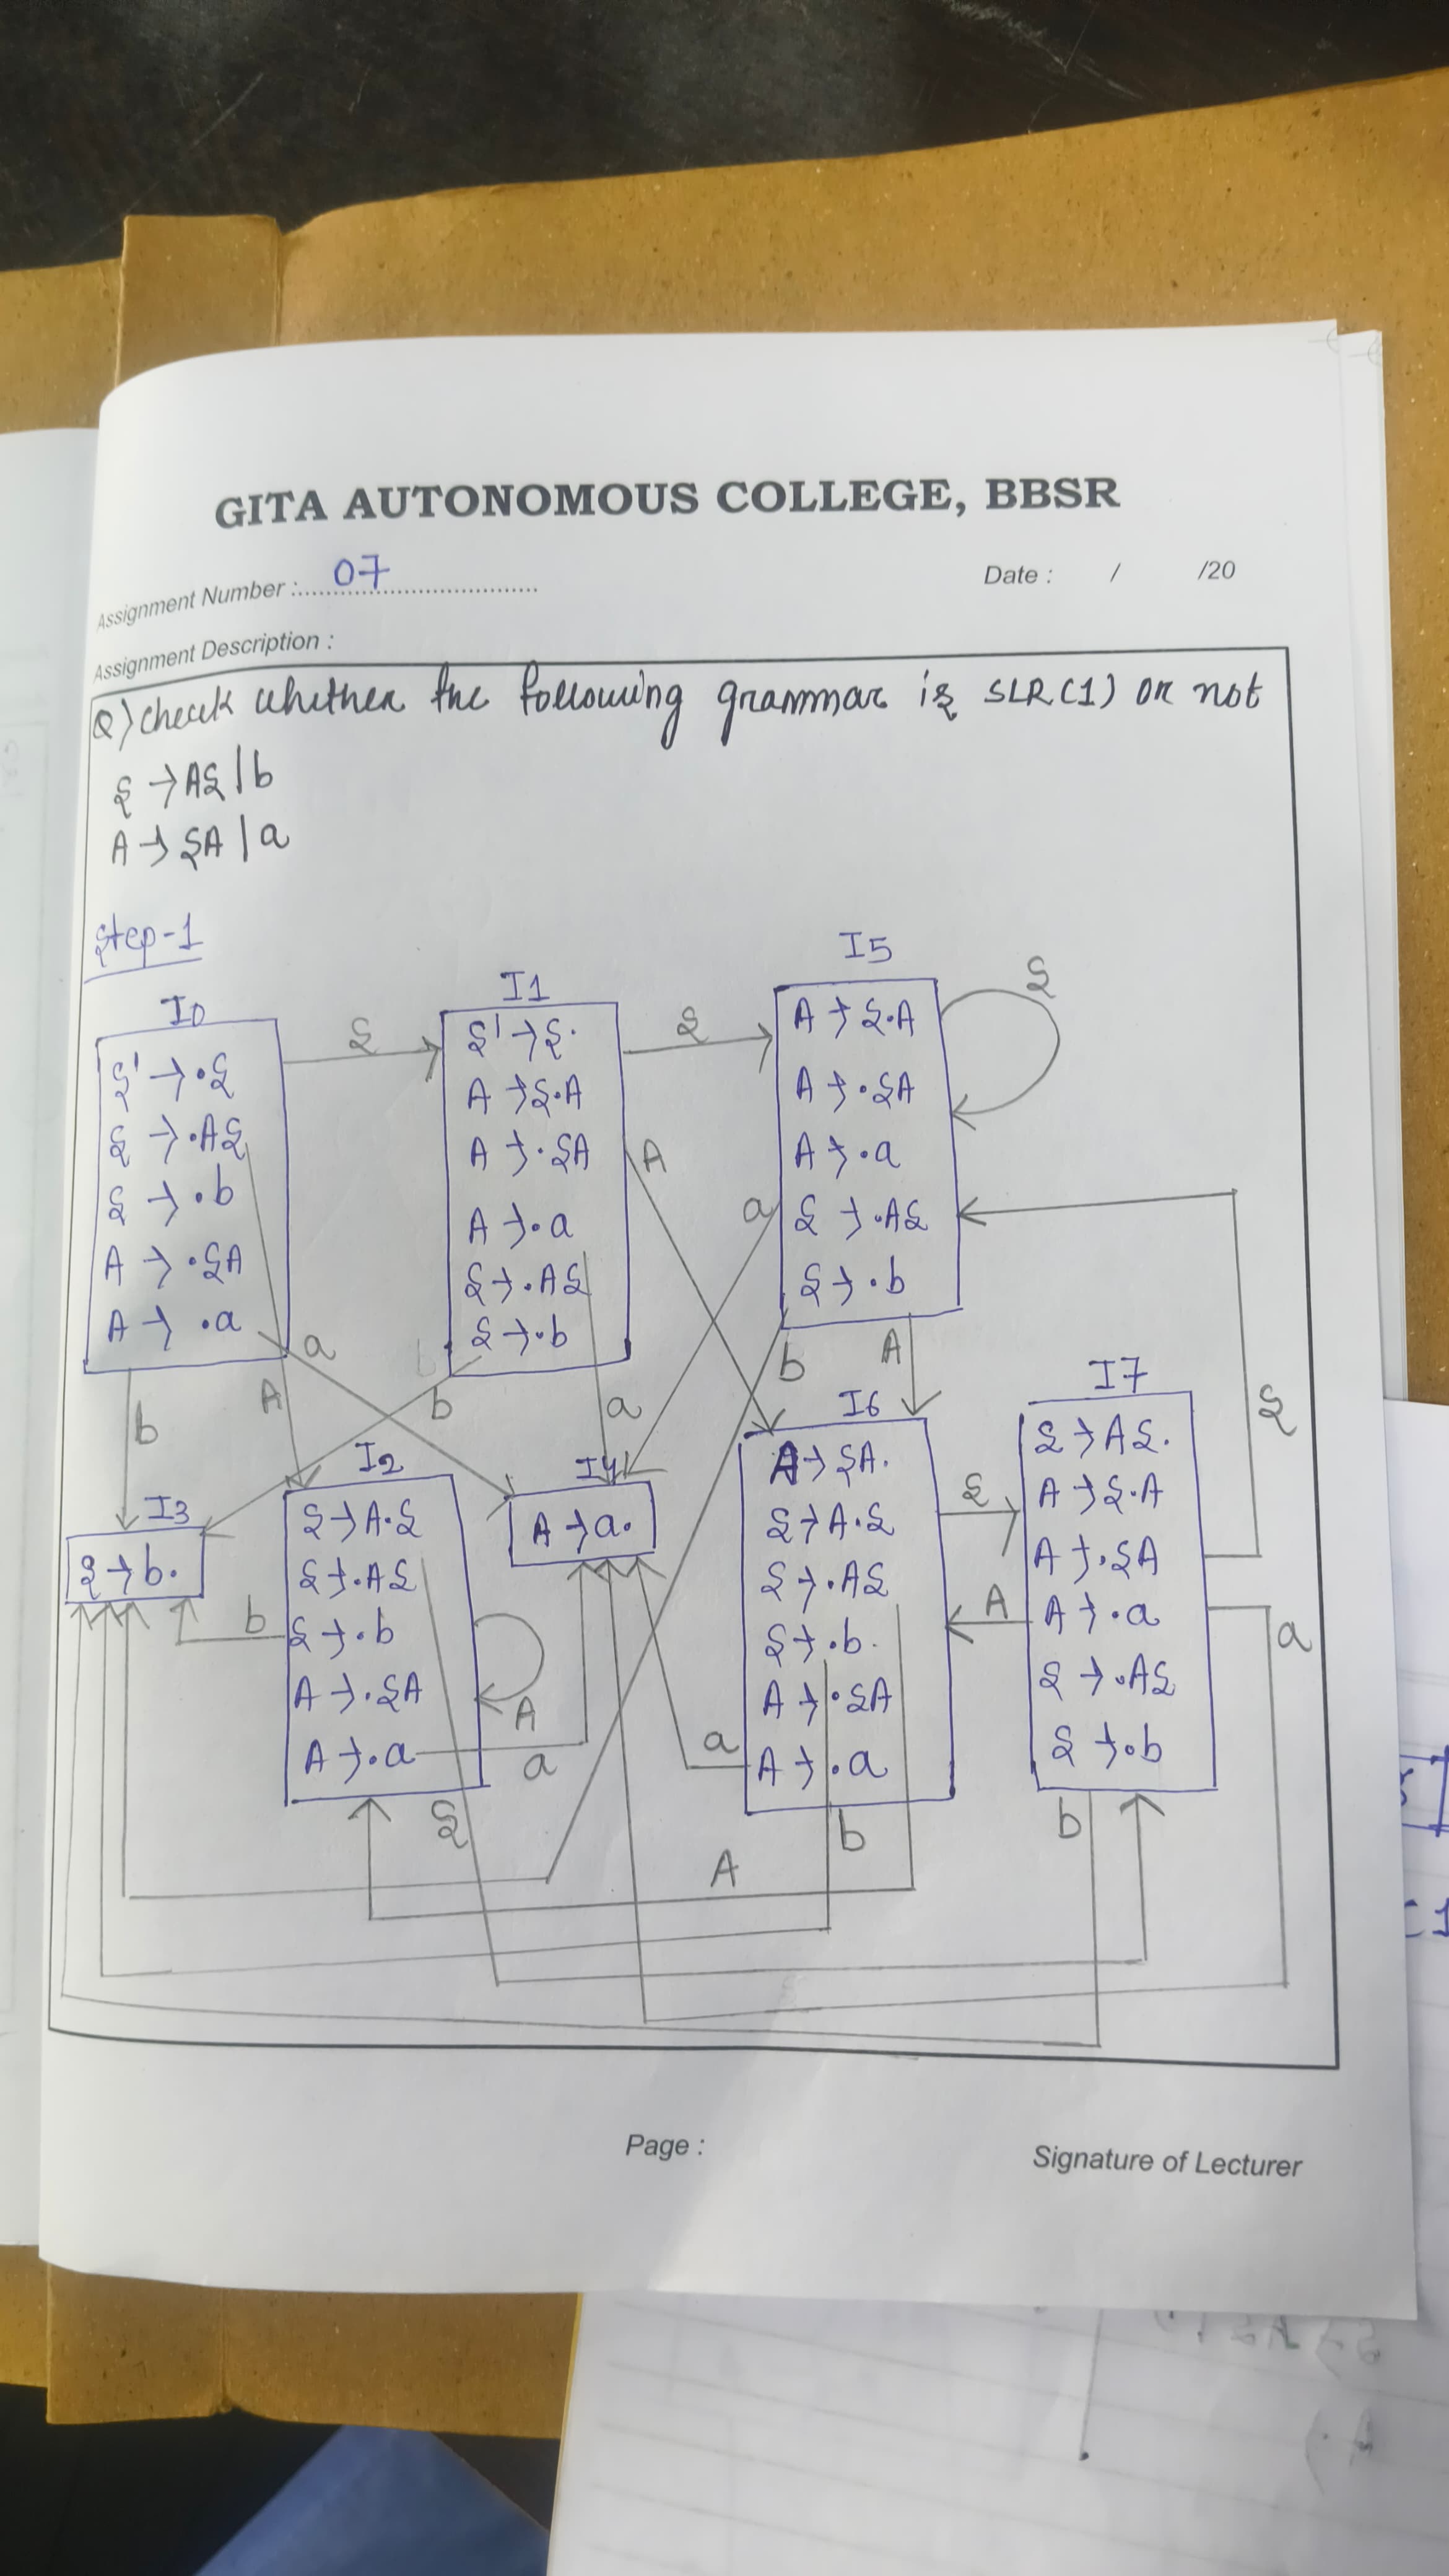 GITA AUTONOMOUS COLLEGE, BBSR
Assignment Number : 07
Date : / /20
Assignment Description :
Q) Check whether the following grammar is SLR(1) or not
S → AS | b
A → SA | a
Step-1
I0
S' → •S
S → •AS
S → •b
A → •SA
A → •a
S
I1
S' → S•
A → S•A
A → •SA
A → •a
S → •AS
S → •b
S
I5
A → S•A
A → •SA
A → •a
S → •AS
S → •b
S
A
a
a
b
A
b
a
b
A
S
I3
S → b•
I2
S → A•S
S → •AS
S → •b
A → •SA
A → •a
b
A
a
S
I4
A → a•
I6
A → SA•
S → A•S
S → •AS
S → •b
A → •SA
A → •a
S
A
a
b
A
I7
S → AS•
A → S•A
A → •SA
A → •a
S → •AS
S → •b
a
b
Page :
Signature of Lecturer